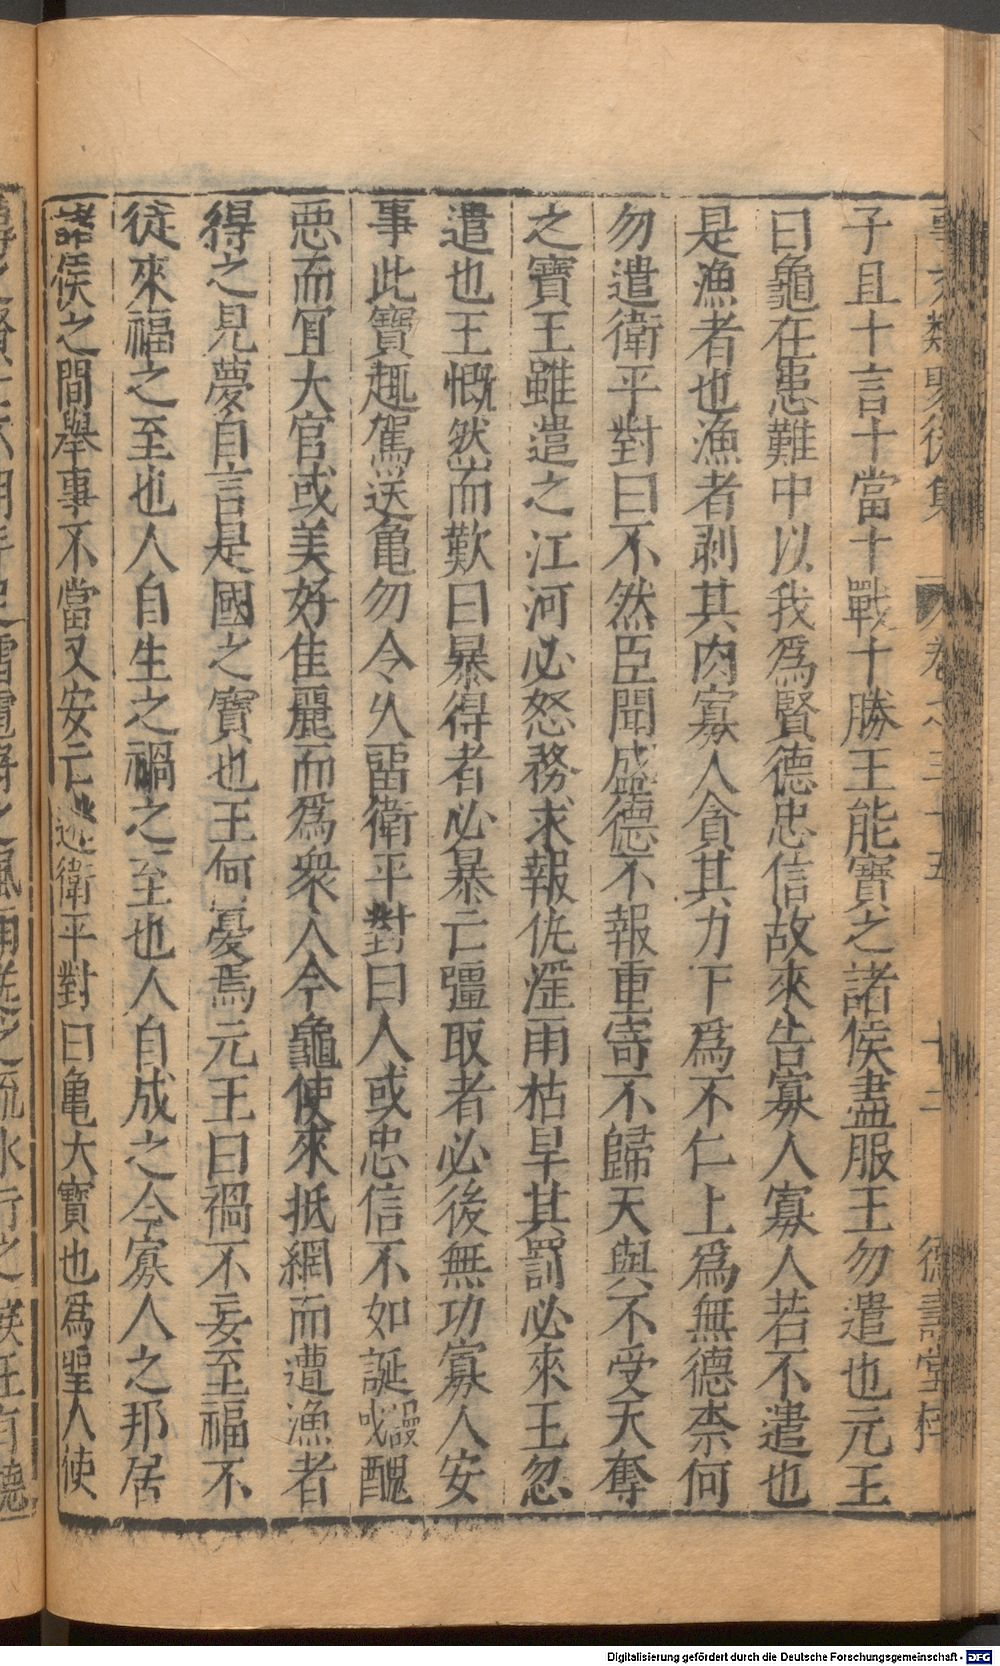 事文類聚後集 卷之三十五 十二 德壽堂梓
子且十言十當十戰十勝王能寶之諸侯盡服王勿遣也元王
曰龜在患難中以我爲賢德忠信故來告寡人寡人若不遣也
是漁者也漁者剥其肉寡人貪其力下爲不仁上爲無德柰何
勿遣衛平對曰不然臣聞盛德不報重寄不歸天與不受天奪
之寶王雖遣之江河必怒務求報仇淫雨枯旱其罰必來王忽
遣也王慨然而歎曰暴得者必暴亡彊取者必後無功寡人安
事此寶趣駕送亀勿令久留衛平對曰人或忠信不如誕謾或醜
惡而冝大官或美好佳麗而爲衆人今龜使來抵網而遭漁者
得之見夢自言是國之寶也王何憂焉元王曰禍不妄至福不
從來福之至也人自生之禍之至也人自成之今寡人之邦居
諸侯之間舉事不當又安亡逃衛平對曰亀大寶也爲聖人使
Digitalisierung gefördert durch die Deutsche Forschungsgemeinschaft - DFG